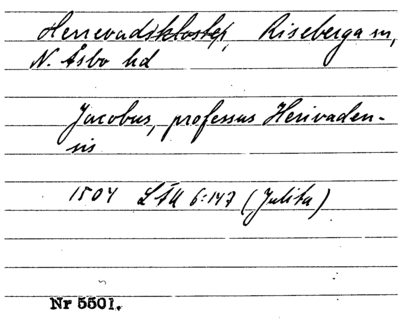 Herrevadskloster, Riseberga sn,
N. Åsbo hd
Jacobus, professus Herivaden-
sis
1504 6:147 (Julita)
Nr 5501.